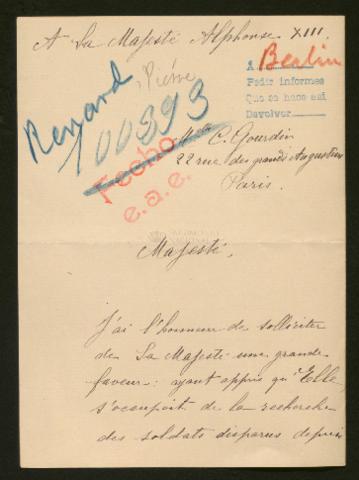 A Sa Majesté Alphonse XIII.
A Berlin
Pedir informes
Que se hace así
Devolver
Renard Pierre
100393
Fecho
e.a.e.
Melle C. Gourdin
22 rue des grands Augustins
Paris.
Majesté,
J'ai l'honneur de solliciter
de Sa Majesté une grande
faveur: ayant appris qu'Elle
s'occupait de la recherche
des soldats disparus depuis